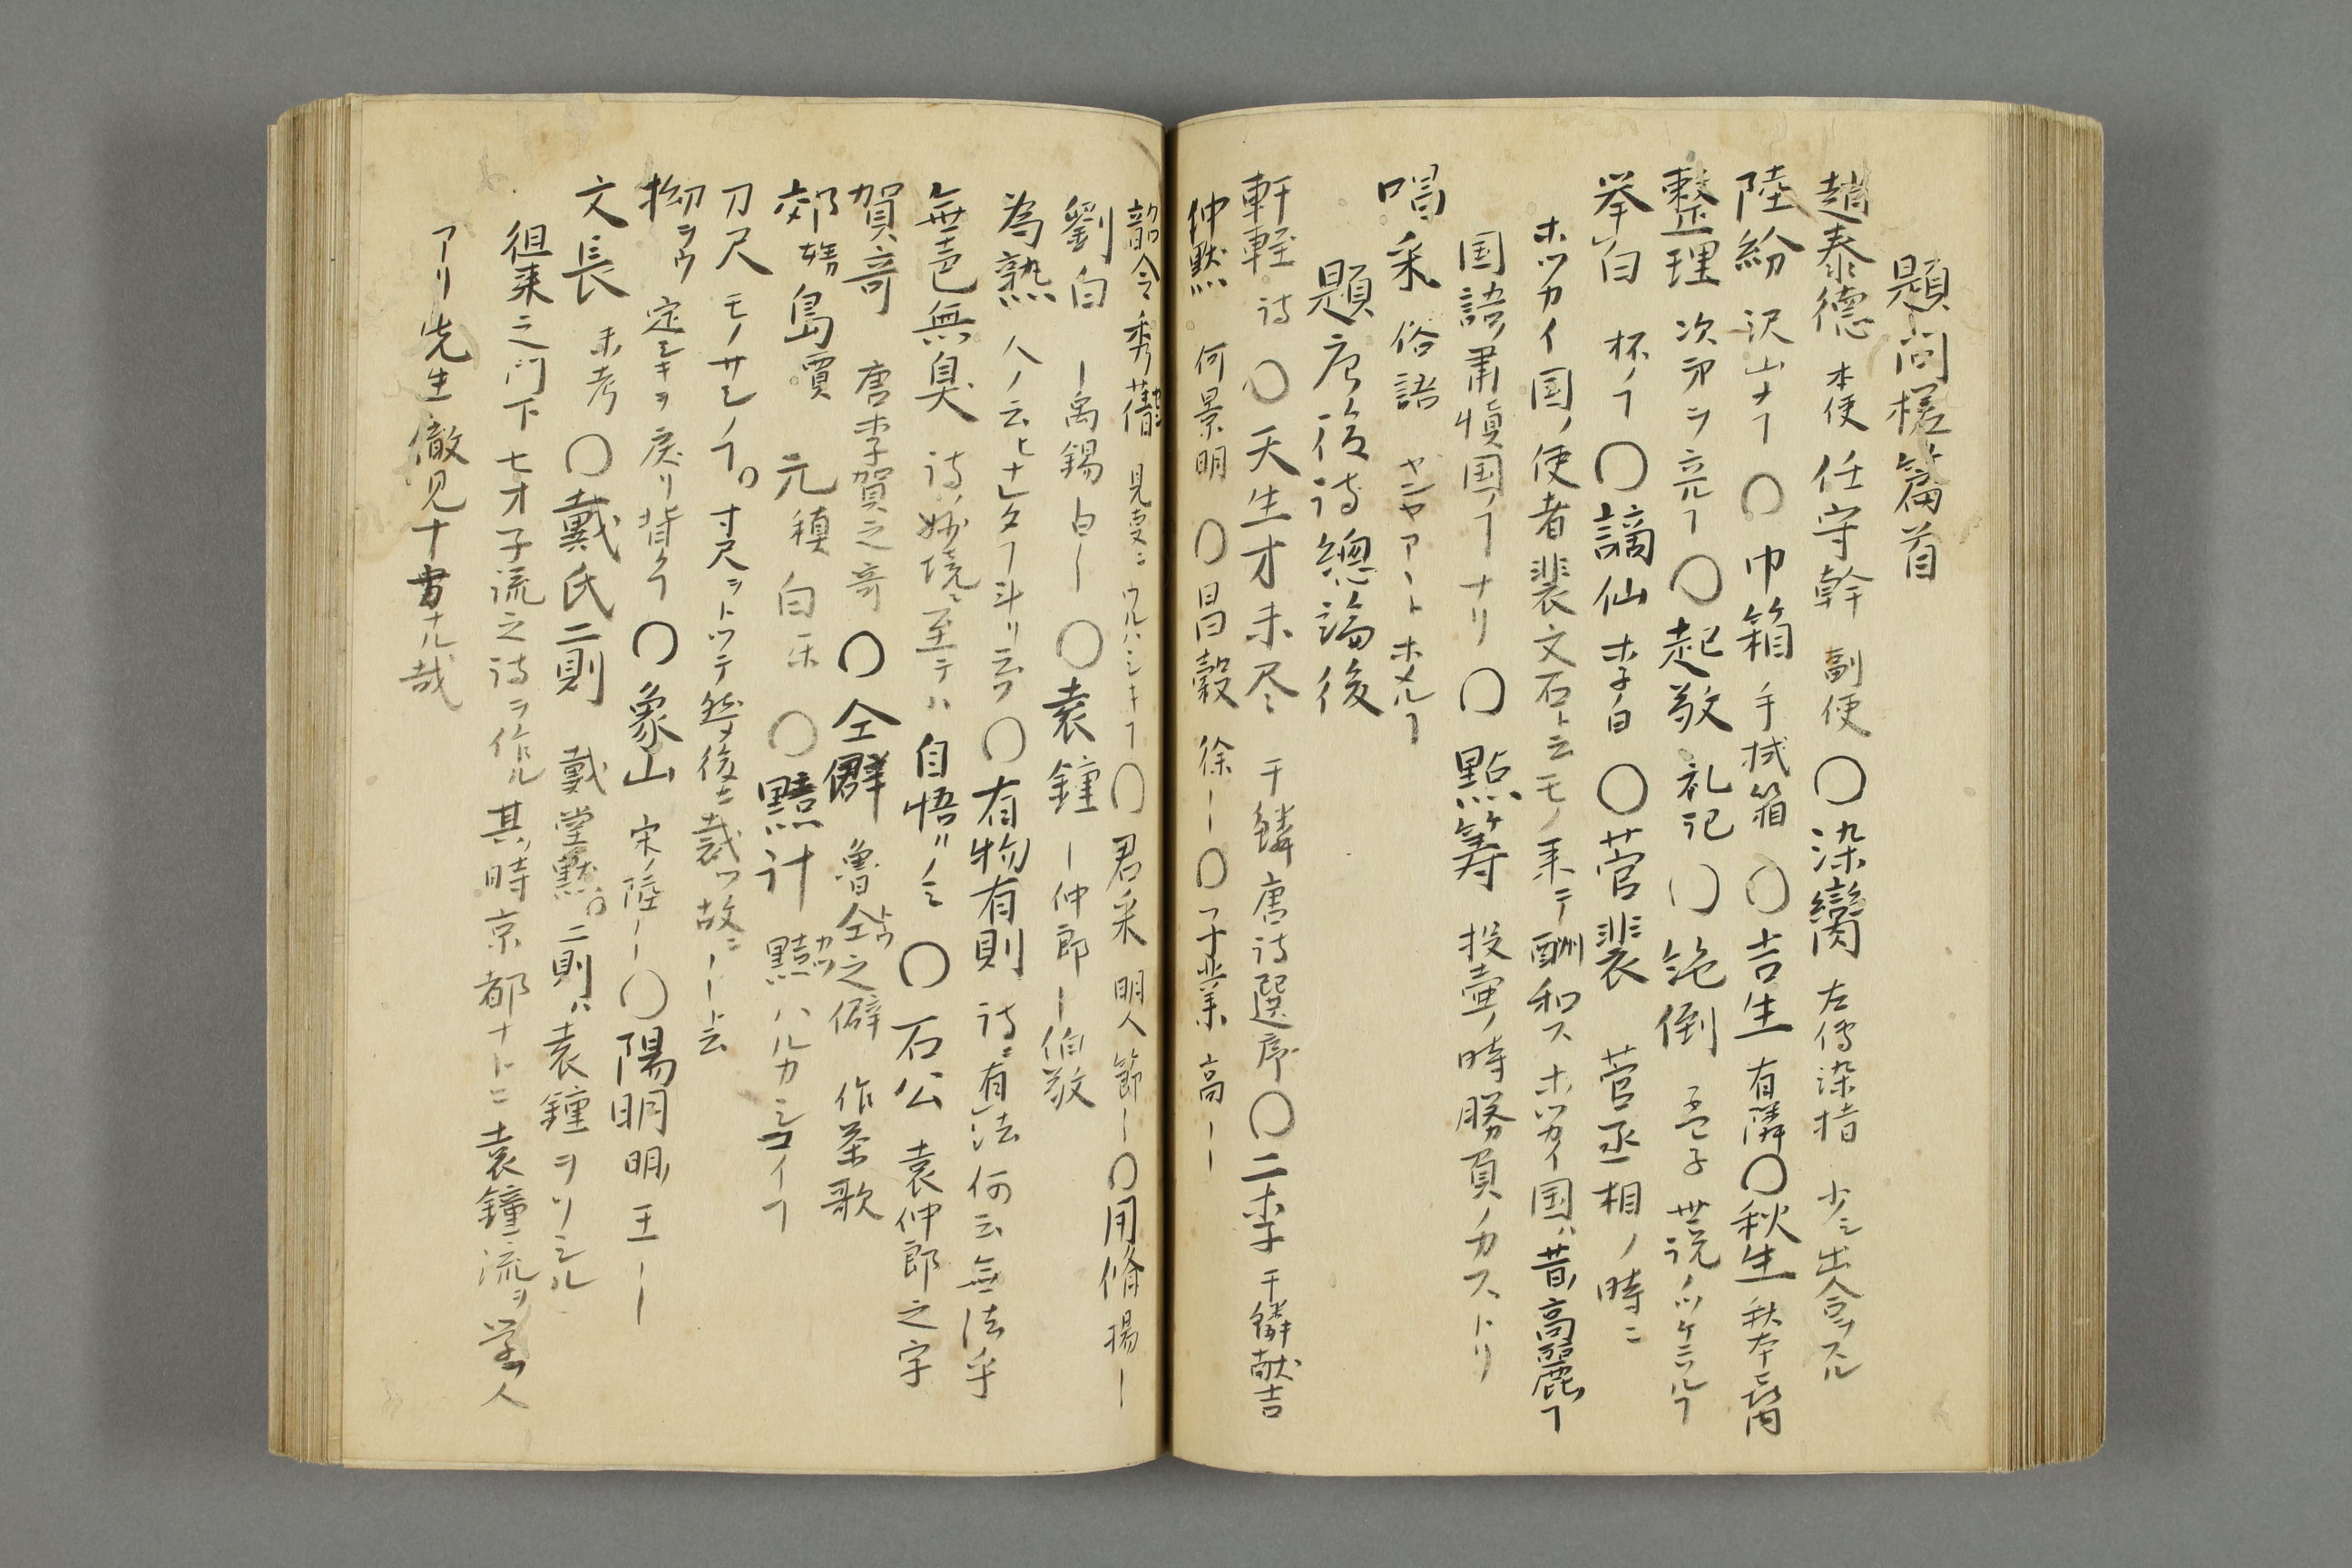 題問槎篇首
趙泰德 本使 任守幹 副使 〇染臠 左傳染指 少シ出合フスル
陸紛 沢山ナヿ 〇巾箱 手拭箱 〇吉生 有隣〇秋生 秋本
整理 次第ヲ立ルヿ 〇起敬 礼記 〇絶倒 孟子 世説ノツケニ
挙白 杯ノヿ 〇謫仙 李白 〇菅裴 菅丞相ノ時ニ
ホツカイ国ノ使者裴文石ト云モノ来テ酬和スホツカイ国ハ昔ノ高麗ノヿ
国語ノ粛慎国ノヿナリ 〇點籌 投壷ノ時勝負ノカストリ
喝采 俗語 ヤンヤアートホメルヿ
題唐後詩總論後
軒輊 詩 〇天生才未尽 于鱗唐詩選序〇二李 于鱗献吉
仲黙 何景明 〇昌穀 徐ー〇子業 高ー
韶令秀藉 見変ニウルハシキヿ〇君采 明人 節ー〇用脩 揚ー
劉白 ー禹錫 白ー 〇袁鐘 ー仲郎 ー伯敬
為熱 人ノ云ヒナヒタヿ斗リ云フ〇有物有則 詩ニ有法何云無法乎
無色無臭 詩ノ妙境ニ至テハ自悟ルノミ〇石公 袁仲郎之字
賀奇 唐李賀之奇 〇仝僻 魯仝之僻 作茶歌
郊 島 賈 元稹 白 〇黠計 黠ハルカシコイヿ
刀尺 モノサシノヿ。寸尺ヲトツテ然メ後ニ裁ツ故ニーート云
拗ラウ 定シキヲ戻リ背クヿ〇象山 宋ノ陸ーー〇陽明 明ノ王ーー
文長 未考 〇戴氏二則 戴堂黙。二則ハ袁鐘ヲソシル
徂来之門下七才子流之詩ヲ作ル其ノ時京都ナトニ袁鐘流ヲ学フ人
アリ先生徹見